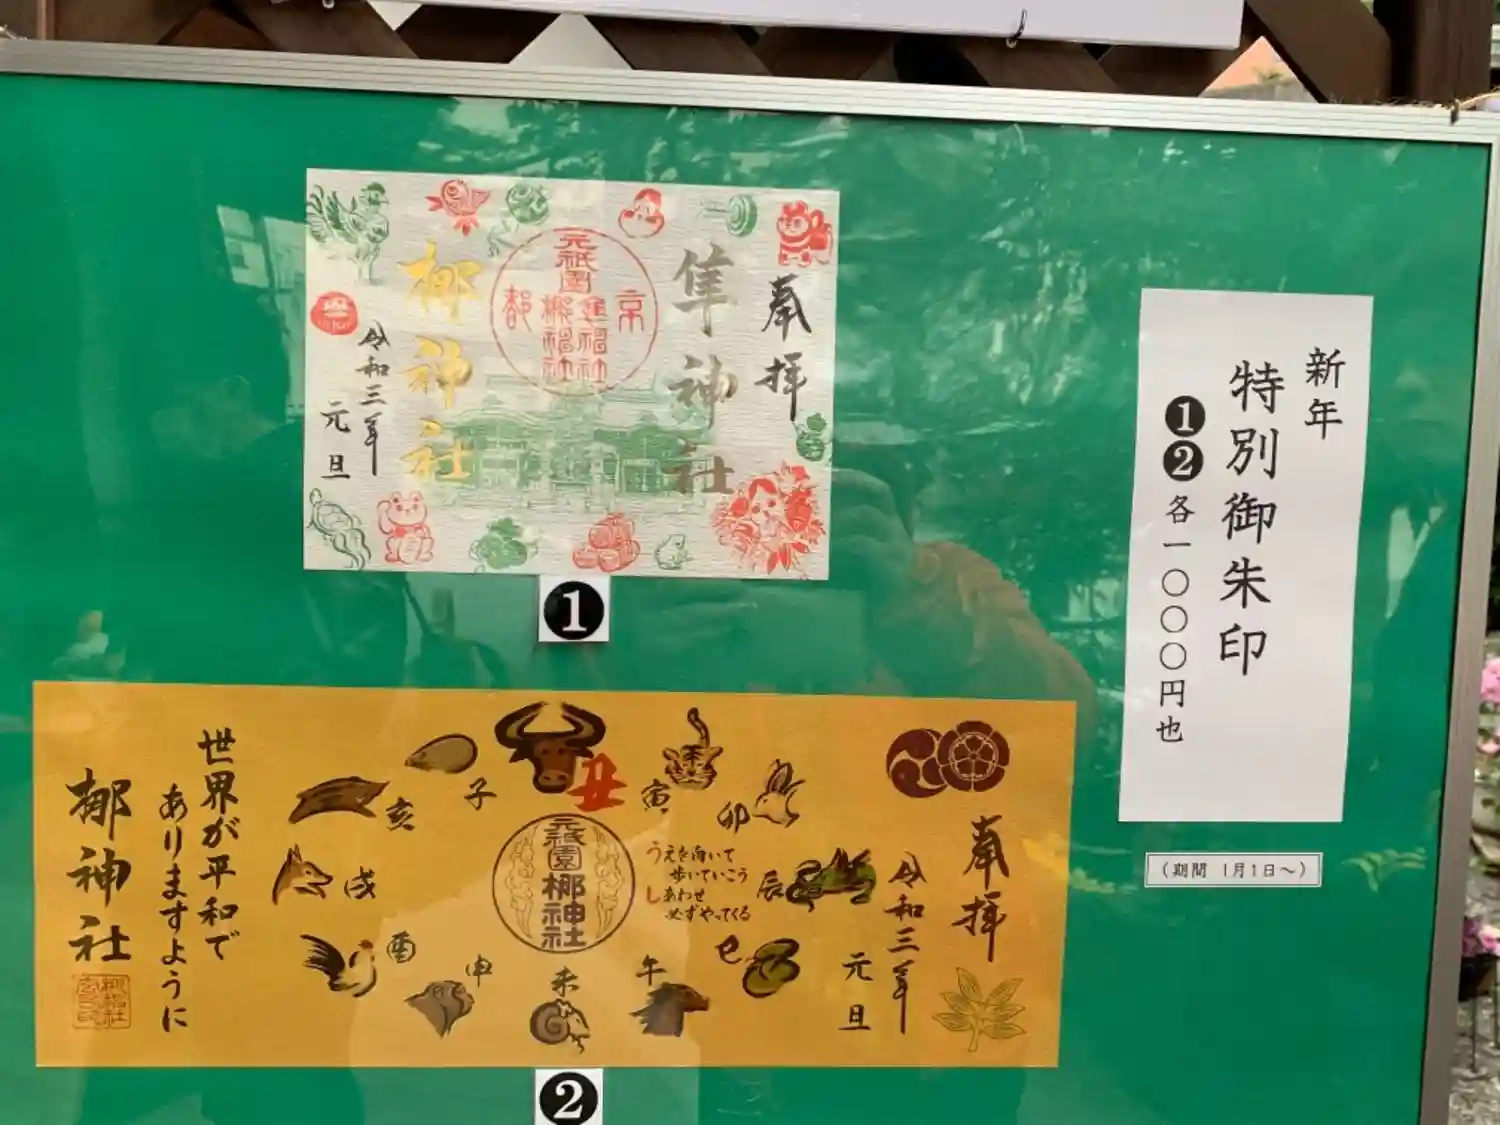 奉拝
隼神社
京都
元祇園
隼神社
梛神社
梛神社
令和三年
元旦
❶
新年
特別御朱印
❶❷各一〇〇〇円也
(期間 1月1日~)
奉拝
令和三年
元旦
丑
寅
卯
辰
巳
午
未
申
酉
戌
亥
子
うえを向いて
歩いていこう
しあわせ
必ずやってくる
元祇園
梛神社
世界が平和で
ありますように
梛神社
❷